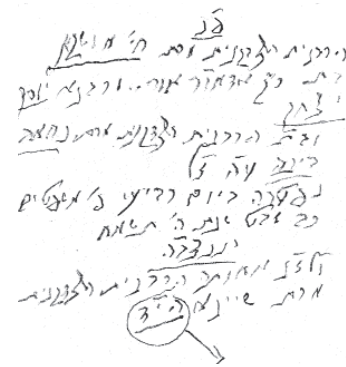 פ"נ
הרבנית הצדקנית מרת חי' מושקא
בת כ"ק אדמו"ר ורבנא יוסף
יצחק
ובת הרבנית הצדקנית מרת נחמה
דינה ע"ה ז"ל
נפטרה ביום רביעי פ' משפטים
כב שבט שנת ה' תשמח
ת נ צ ב ה
ולז"נ אחותה הרבנית הצדקנית
מרת שיינא הי"ד